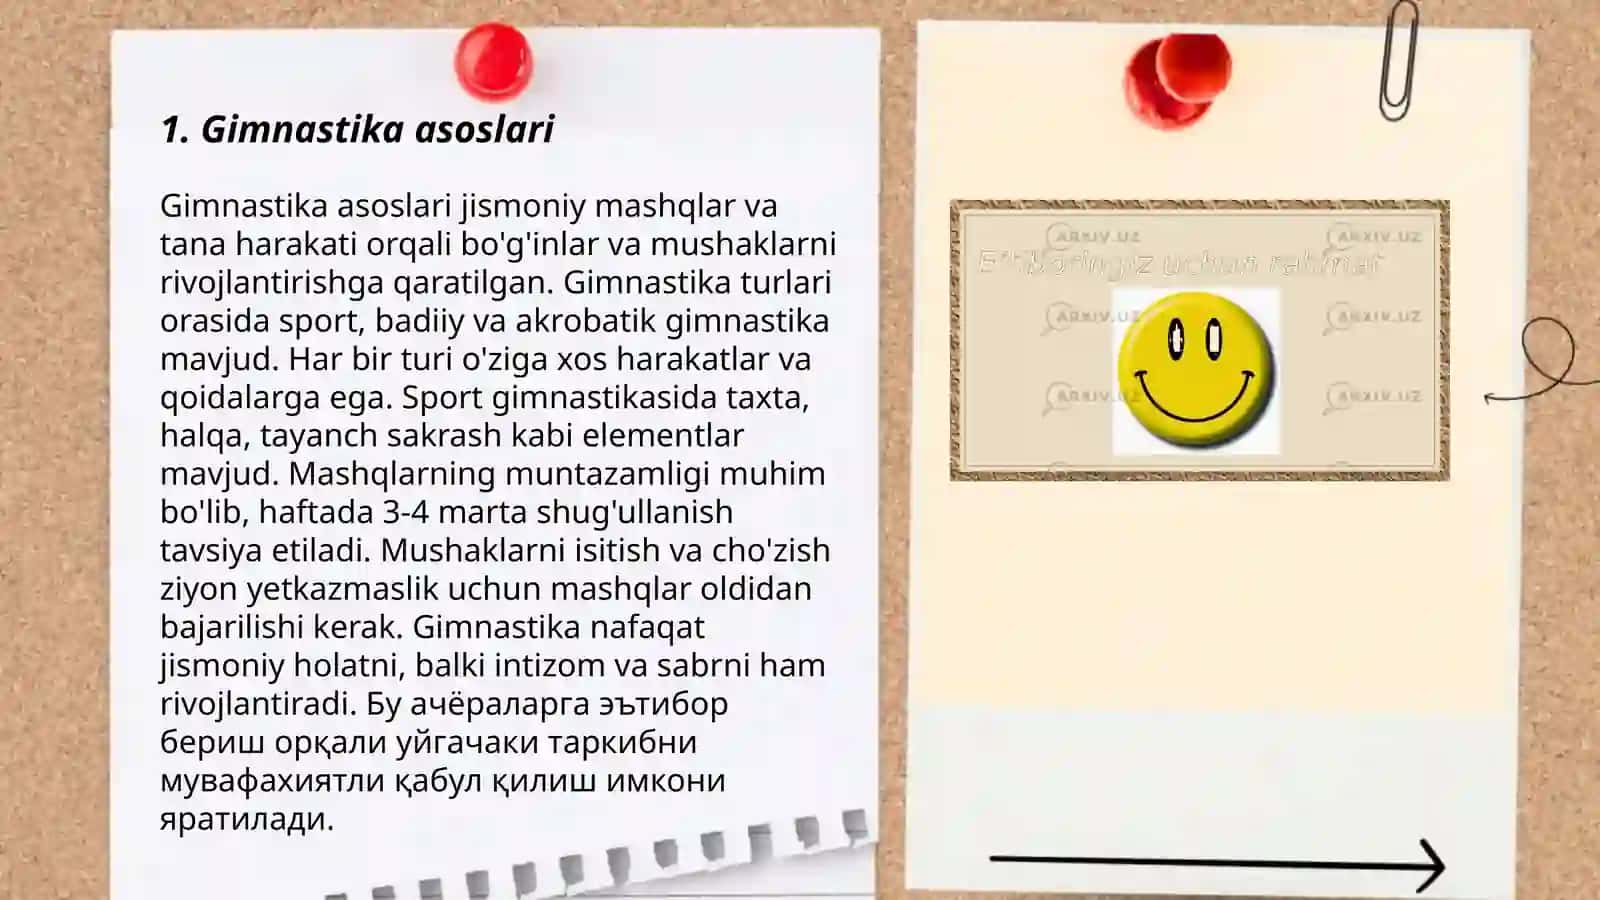 1. Gimnastika asoslari
Gimnastika asoslari jismoniy mashqlar va
tana harakati orqali bo'g'inlar va mushaklarni
rivojlantirishga qaratilgan. Gimnastika turlari
orasida sport, badiiy va akrobatik gimnastika
mavjud. Har bir turi o'ziga xos harakatlar va
qoidalarga ega. Sport gimnastikasida taxta,
halqa, tayanch sakrash kabi elementlar
mavjud. Mashqlarning muntazamligi muhim
bo'lib, haftada 3-4 marta shug'ullanish
tavsiya etiladi. Mushaklarni isitish va cho'zish
ziyon yetkazmaslik uchun mashqlar oldidan
bajarilishi kerak. Gimnastika nafaqat
jismoniy holatni, balki intizom va sabrni ham
rivojlantiradi. Бу ачёраларга эътибор
бериш орқали уйгачаки таркибни
мувафахиятли қабул қилиш имкони
яратилади.
ARXIV.UZ ARXIV.UZ
uchun rahmat
ARXIV.UZ ARXIV.UZ
ARXIV.UZ ARXIV.UZ